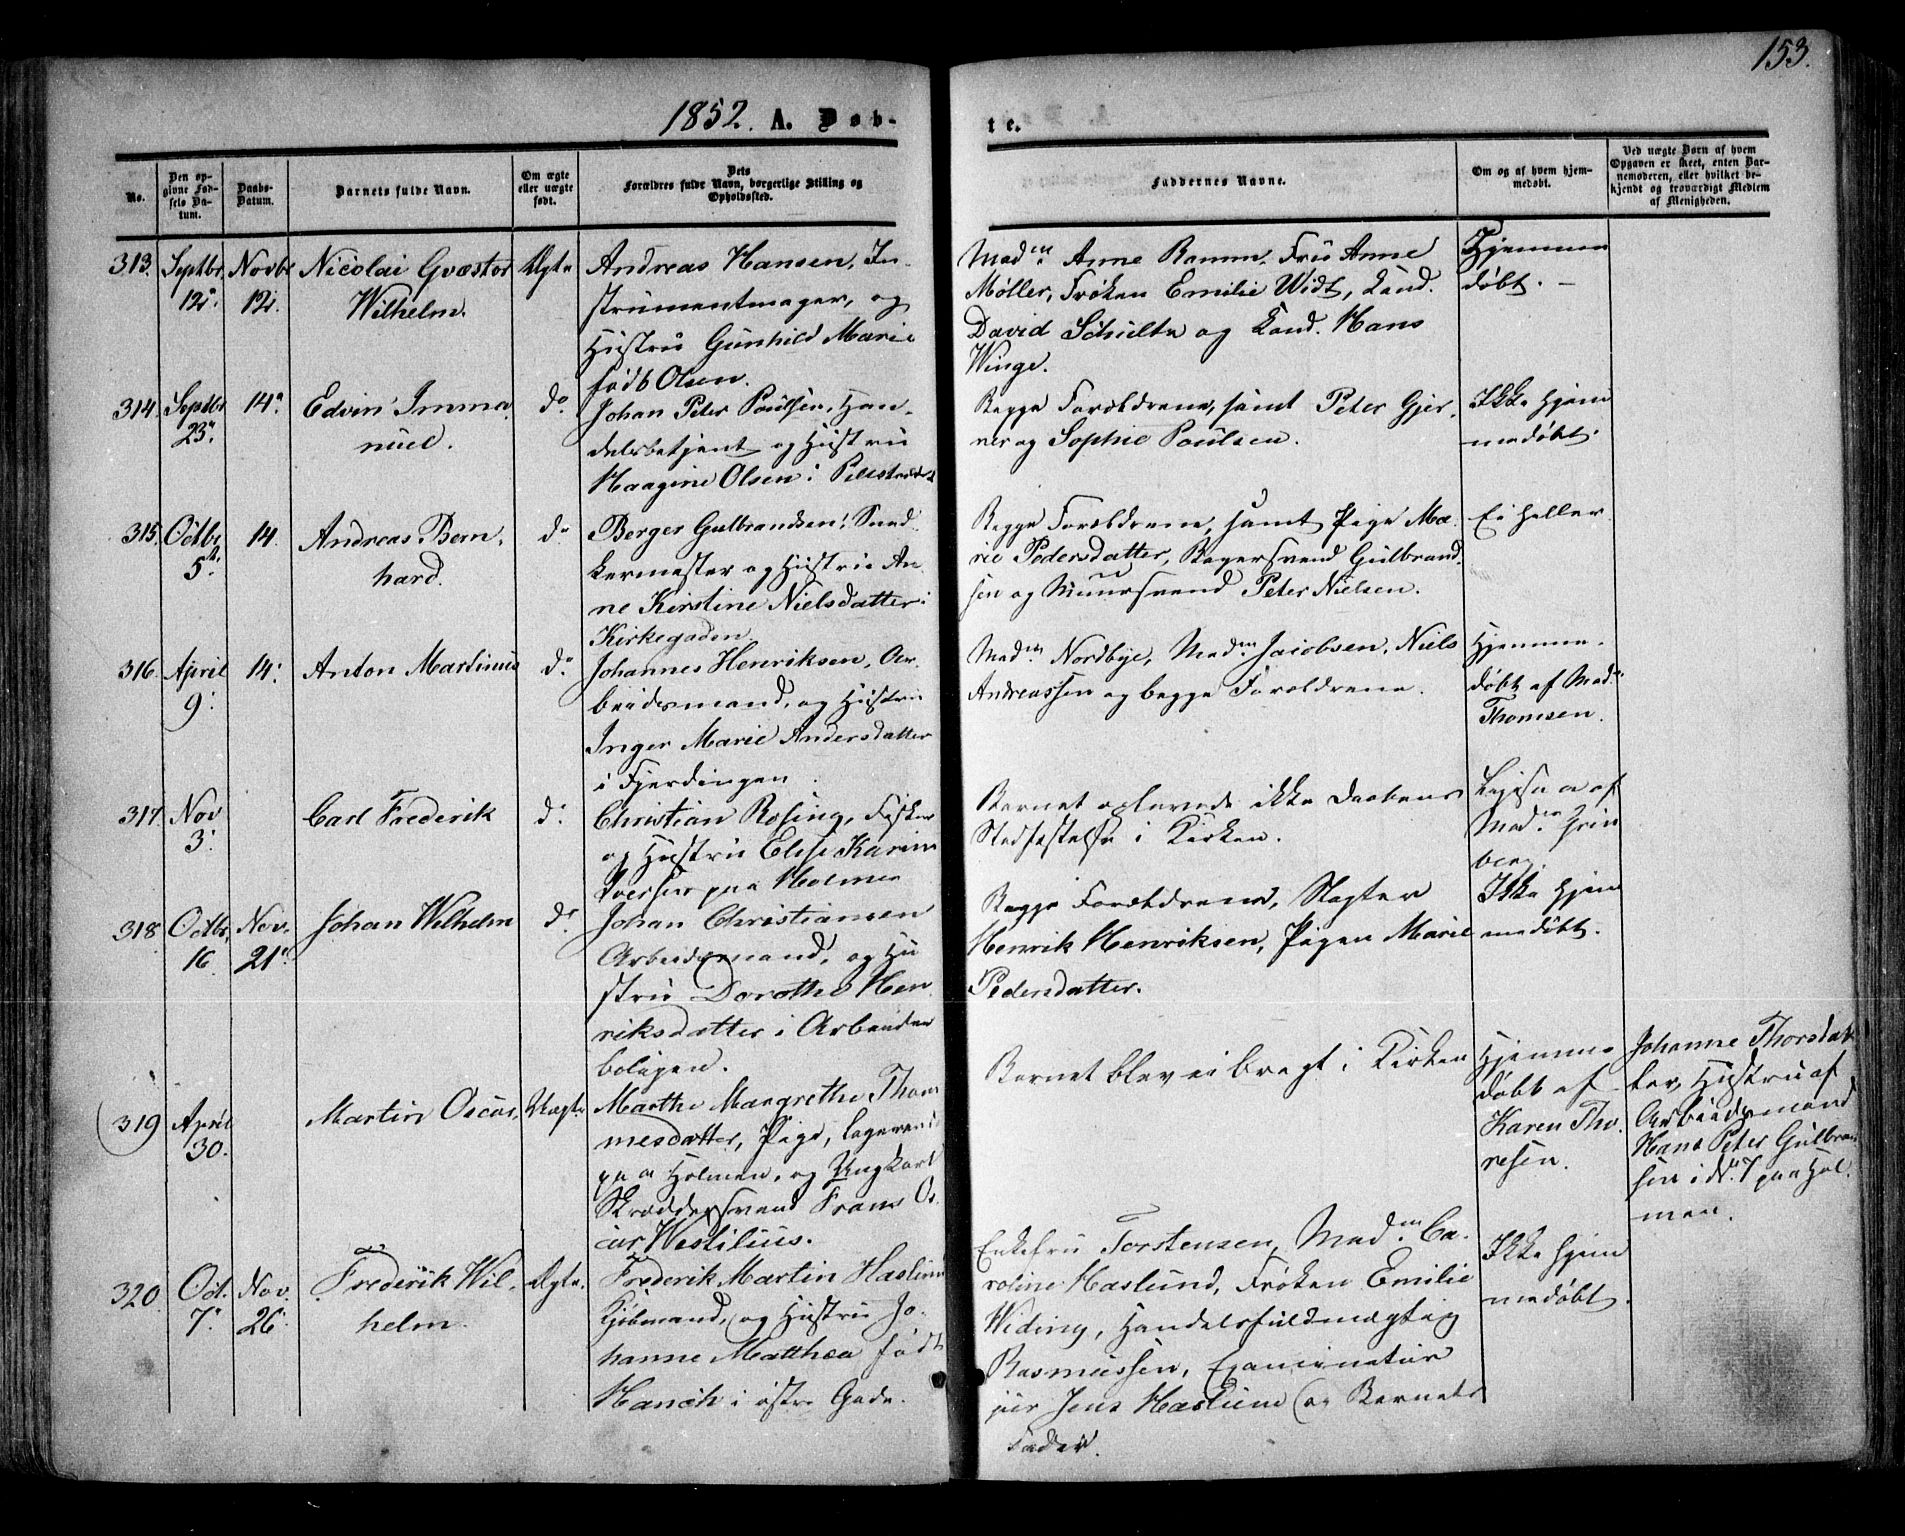 153.
1852. A. Døb-
te.
No.
Den op-
givne Fød-
sels Da-
tum.
Daabs-
Datum.
Barnets fulde Navn.
Om ægte
eller uægte
født.
Dets
Forældres fulde Navn, borgerlige Stilling og
Opholdssted.
Faddernes Navne.
Om og af hvem hjem-
medøbt.
Ved uægte Børn af hvem
Opgaven er skeet, enten Bar-
nemoderen, eller hvilket be-
kjendt og troværdigt Medlem
af Menigheden.
313. Septbr
12.
Novbr
12.
Nicolai Qvæstor
Wilhelm.
Ægte
Andreas Hansen, In-
strumentmager, og
Hustru Gunhild Marie
født Olsen.
Madm. Anne Ramm, Fru Anne
Møller, Frøken Emilie Widt, Cand.
David Schultz og Cand. Hans
Winge.
Hjemme
døbt. –
314. Septbr
23.
14.
Edvin Imma
nuel.
do
Johan Peter Poulsen, Han-
delsbetjent og Hustru
Haagine Olsen i Pilestrædet
Begge Forældrene, samt Peter Gjer-
nes og Sophie Poulsen.
Ikke hjem
medøbt.
315. Octbr
5t.
14.
Andreas Bern-
hard.
do
Borger Gulbrandsen, Sned
kermester og Hustru An
ne Kirstine Nielsdatter i
Kirkegaden.
Begge Forældrene, samt Pige Ma-
rie Pedersdatter, Bagersvend Gulbrand-
sen og Muursvend Peter Nielsen.
Ei heller
316. April
9.
14.
Anton Martinus
do
Johannes Henriksen, Ar-
beidsmand, og Hustru
Inger Marie Andersdatter
i Fjerdingen.
Madm. Nordbye, Madm. Jacobsen, Niels
Andreassen og begge Forældrene.
Hjemme-
døbt af Madm.
Thomsen.
317. Nov
3.
Carl Frederik
do
Christian Rosing, Fisker
og Hustru Elise Karine
Iversen paa Holmen
Barnet oplevede ikke Daabens
Stadfæstelse i Kirken.
af
Madm. Grin
berg.
318. Octbr.
16.
Nov.
21.
Johan Wilhelm
do
Johan Christiansen
Arbeidsmand, og Hu
stru Dorothe Hen
riksdatter i Arbeider
boligen.
Begge Forældrene, Slagter
Henrik Henriksen, Pigen Marie
Pedersdatter.
Ikke hjem
medøbt.
319 April
30.
Martin Oscar,
Uægte
Marthe Margrethe Thom
mesdatter, Pige, logerende
paa Holmen, og Ungkarl
Skræddersvend Frans Os
car Westilius.
Barnet blev ei bragt i Kirken
Hjemme
døbt af
Karen Tho-
resen.
Johanne Thorsdat
ter, Hustru af
Arbeidsmand
Hans Peter Gulbran
sen i No. 7 paa Hol
men.
320. Oct.
7.
Nov.
26.
Frederik Wil-
helm.
Ægte.
Frederik Martin Haslund
Kjøbmand, og Hustru Jo-
hanne Matthea født
Hanch i østre Gade.
Enkefru Torstensen, Madm. Ca-
roline Haslund, Frøken Emilie
Widing, Handelsfuldmægtig
Rasmussen, Examinatus
jur Jens Haslund og Barnets
Fader.
Ikke hjem
medøbt.